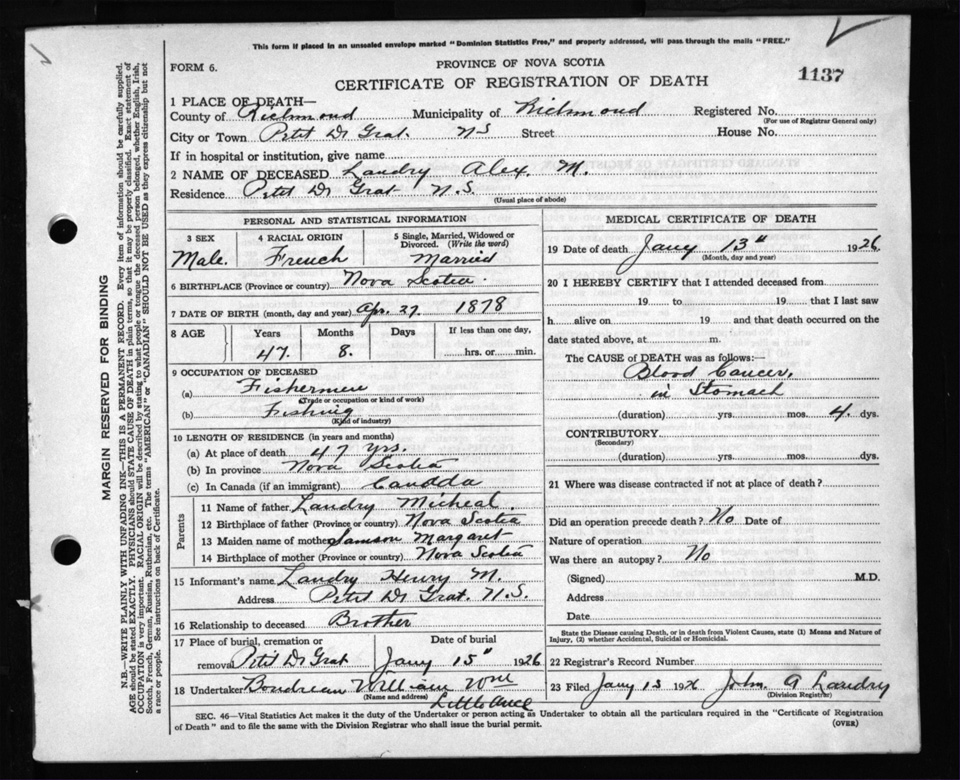 This form if placed in an unsealed envelope marked "Dominion Statistics Free," and properly addressed, will pass through the mails "FREE."
FORM 6.
PROVINCE OF NOVA SCOTIA
CERTIFICATE OF REGISTRATION OF DEATH
1137
1 PLACE OF DEATH—
County of Richmond Municipality of Richmond Registered No.
(For use of Registrar General only)
City or Town Petit Di Grat. N S Street House No.
If in hospital or institution, give name
2 NAME OF DECEASED Landry Alex. M.
Residence Petit Di Grat N.S.
(Usual place of abode)
PERSONAL AND STATISTICAL INFORMATION
3 SEX 4 RACIAL ORIGIN 5 Single, Married, Widowed or Divorced. (Write the word)
Male. French Married
6 BIRTHPLACE (Province or country) Nova Scotia.
7 DATE OF BIRTH (month, day and year) Apr. 27. 1878
8 AGE Years Months Days If less than one day,
47. 8. hrs. or min.
9 OCCUPATION OF DECEASED
(a) Fishermen
(Trade or occupation or kind of work)
(b) Fishing
(Kind of industry)
10 LENGTH OF RESIDENCE (in years and months)
(a) At place of death 47 yrs.
(b) In province Nova Scotia
(c) In Canada (if an immigrant) Canada
Parents
11 Name of father Landry Micheal.
12 Birthplace of father (Province or country) Nova Scotia
13 Maiden name of mother Samson Margaret
14 Birthplace of mother (Province or country) Nova Scotia
15 Informant's name Landry Henry M.
Address Petit Di Grat. N.S.
16 Relationship to deceased Brother
17 Place of burial, cremation or removal Petit Di Grat Date of burial Jany 15" 1926
18 Undertaker Boudreau William Wm
(Name and address) Little Ance
MEDICAL CERTIFICATE OF DEATH
19 Date of death Jany 13" 1926
(Month, day and year)
20 I HEREBY CERTIFY that I attended deceased from
19 to 19 that I last saw
h alive on 19 and that death occurred on
date stated above, at m.
The CAUSE of DEATH was as follows:—
Blood Cancer,
in Stomach
(duration) yrs. mos. 4. dys.
CONTRIBUTORY
(Secondary)
(duration) yrs. mos. dys.
21 Where was disease contracted if not at place of death?
Did an operation precede death? No Date of
Nature of operation
Was there an autopsy? No
(Signed) M.D.
Address
Date
State the Disease causing Death, or in death from Violent Causes, state (1) Means and Nature of
Injury, (2) whether Accidental, Suicidal or Homicidal.
22 Registrar's Record Number
23 Filed Jany 13 192 John. A Landry
(Division Registrar)
SEC. 46—Vital Statistics Act makes it the duty of the Undertaker or person acting as Undertaker to obtain all the particulars required in the "Certificate of Registration
of Death" and to file the same with the Division Registrar who shall issue the burial permit.
(OVER)
MARGIN RESERVED FOR BINDING
N.B.—WRITE PLAINLY WITH UNFADING INK—THIS IS A PERMANENT RECORD. Every item of information should be carefully supplied.
AGE should be stated EXACTLY. PHYSICIANS should STATE CAUSE OF DEATH in plain terms, so that it may be properly classified. Exact statement of
OCCUPATION is very important. RACIAL ORIGIN will be described by stating to what people or tongue the deceased person belonged, whether English, Irish,
Scotch, French, German, Russian, Ruthenian, etc. The terms "AMERICAN" or "CANADIAN" SHOULD NOT BE USED as they express citizenship but not
a race or people. See instructions on back of Certificate.